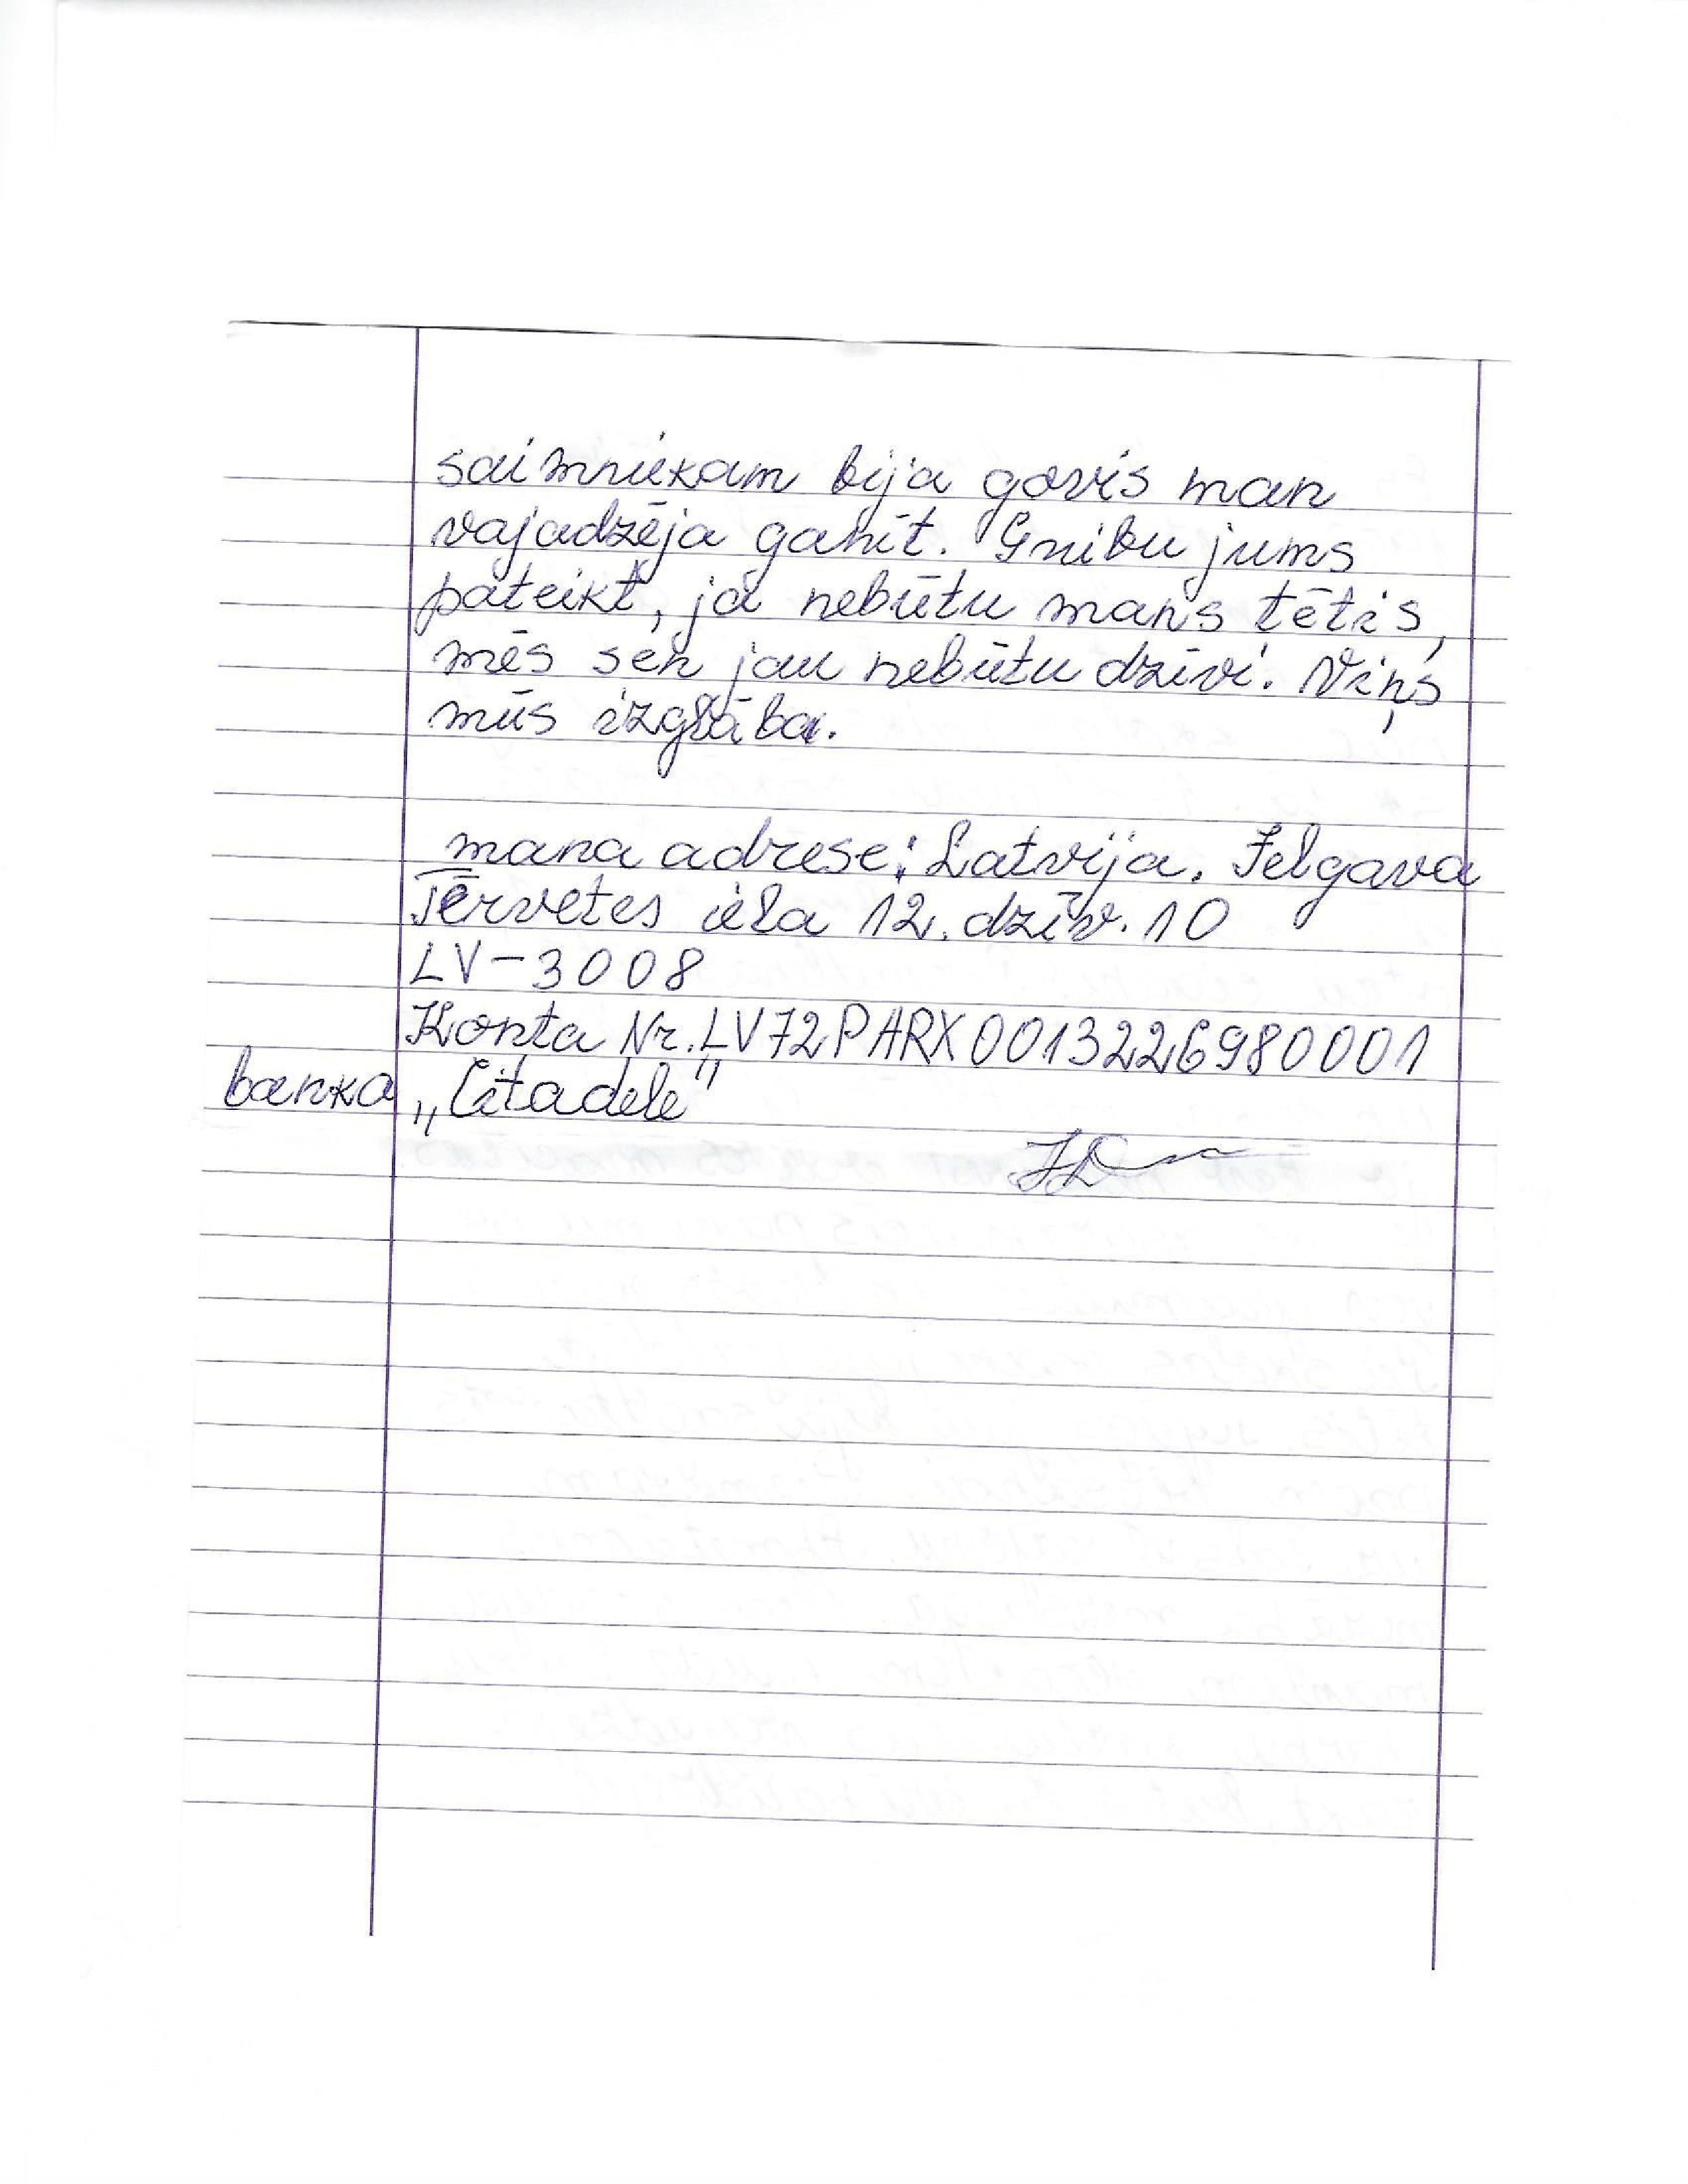 saimniekam bija govis man
vajadzēja ganīt. Gribu jums
pateikt, ja nebūtu mans tētis,
mēs sen jau nebūtu dzīvi. Viņš
mūs izglāba.
mana adrese: Latvija. Jelgava
Tērvetes iela 12. dzīv. 10
LV-3008
Konta Nr. LV72PARX0013226980001
banka „Citadele"